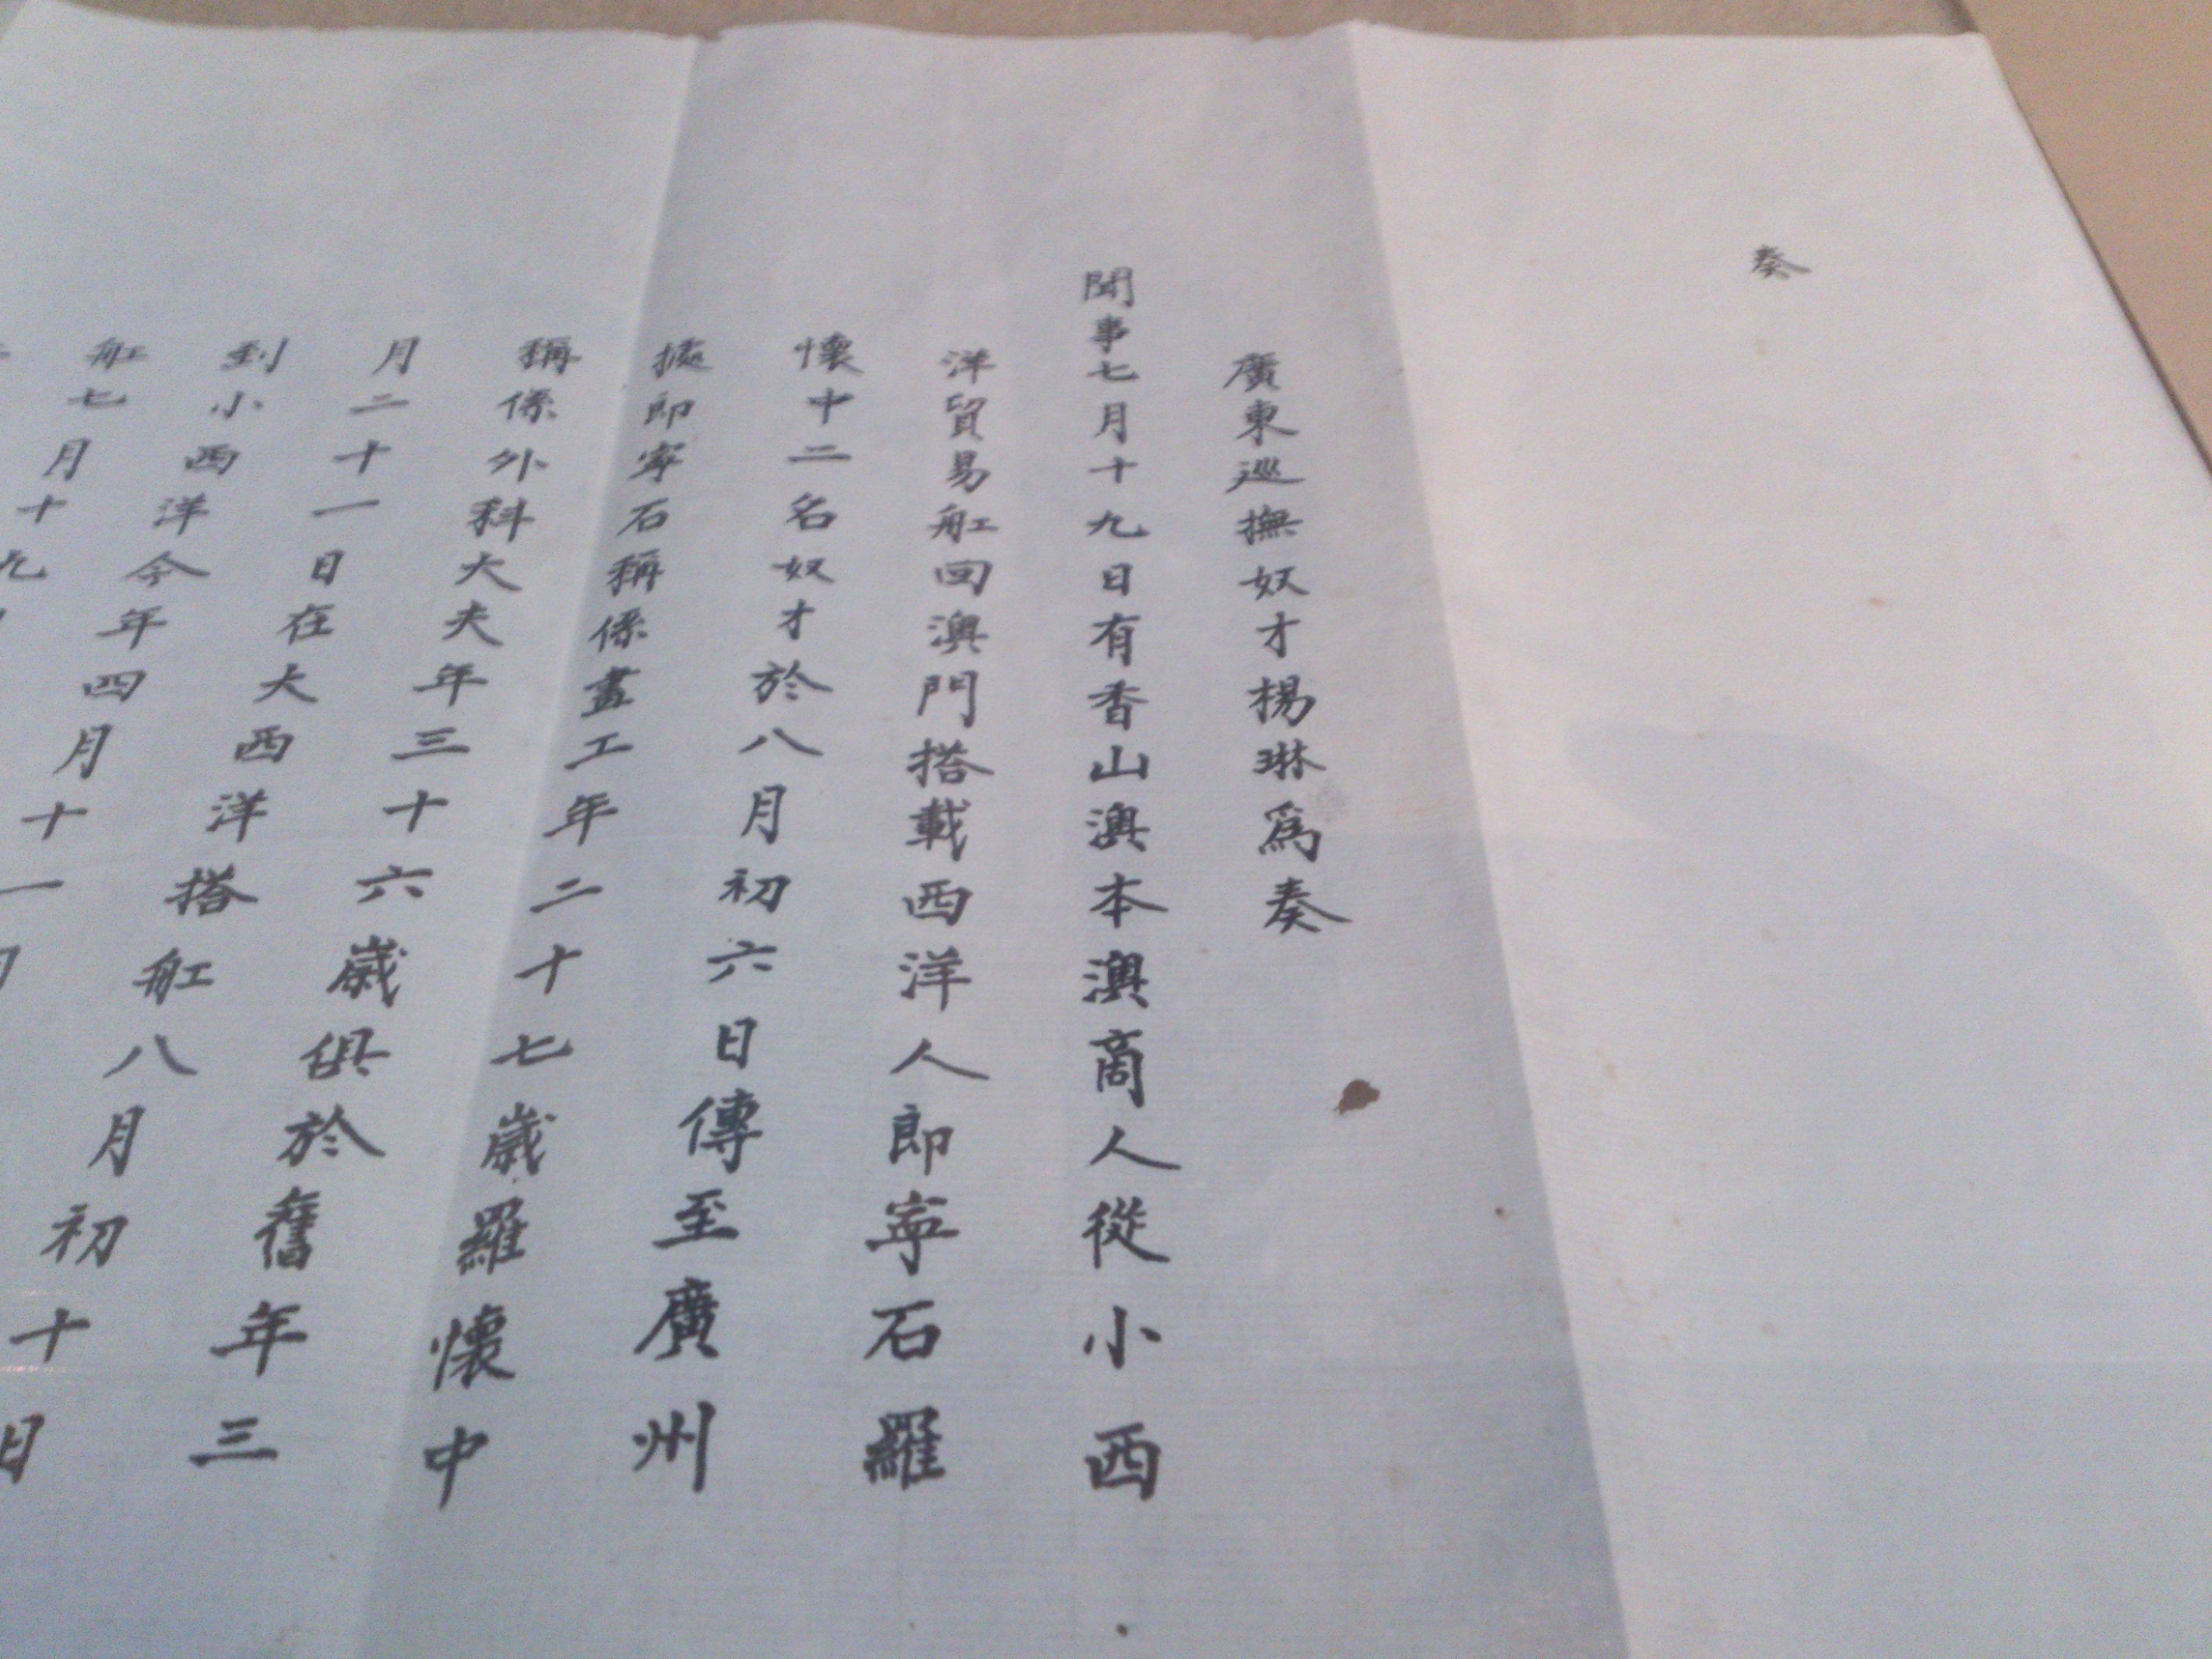 奏
廣東巡撫奴才楊琳爲奏
聞事七月十九日有香山澳本澳商人從小西
洋貿易舡回澳門搭載西洋人郎寧石羅
懷中二名奴才於八月初六日傳至廣州
據郎寧石稱係畫工年二十七歲羅懷中
稱係外科大夫年三十六歲俱於舊年三
月二十一日在大西洋搭舡八月初十日
到小西洋今年四月十一日
舡七月十九